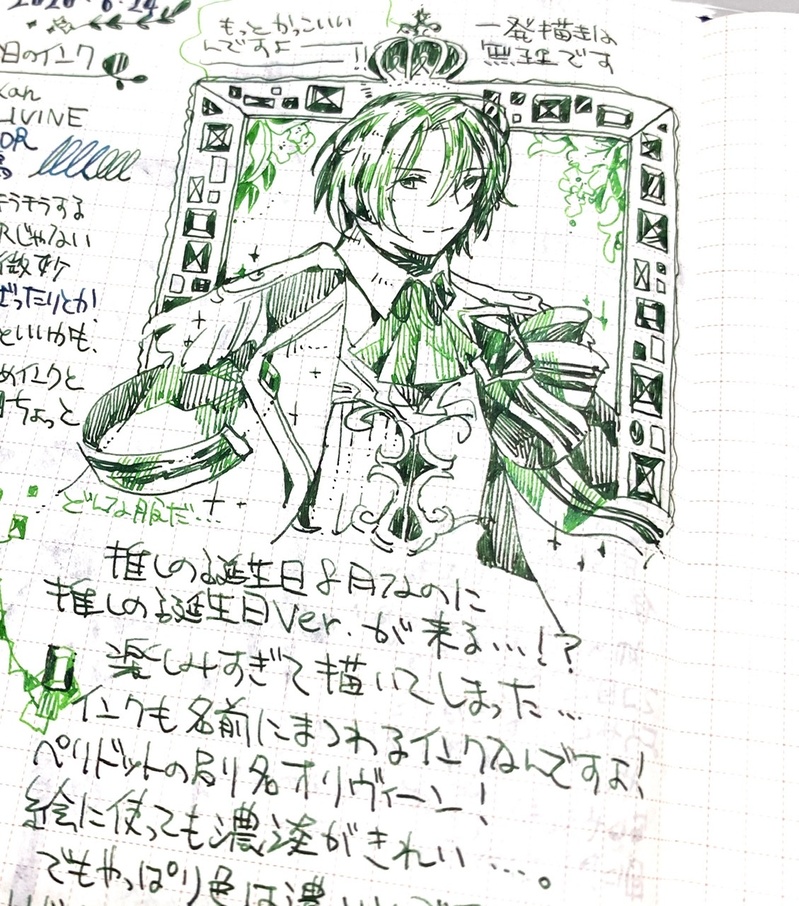 2020・6・24
もっとかっこいい
んですよ――!!
一発描きは
無理です
日のインク
LIVINE
キラキラする
訳じゃない
微妙
だったりとか
といいかも、
めインクと
ちょっと
どんな服だ…
推しの誕生日8月なのに
推しの誕生日Ver.が来る…!?
楽しみすぎて描いてしまった…
インクも名前にまつわるインクなんですよ!
ペリドットの別名オリヴィーン!
絵に使っても濃淡がきれい…。
でもやっぱり色は濃